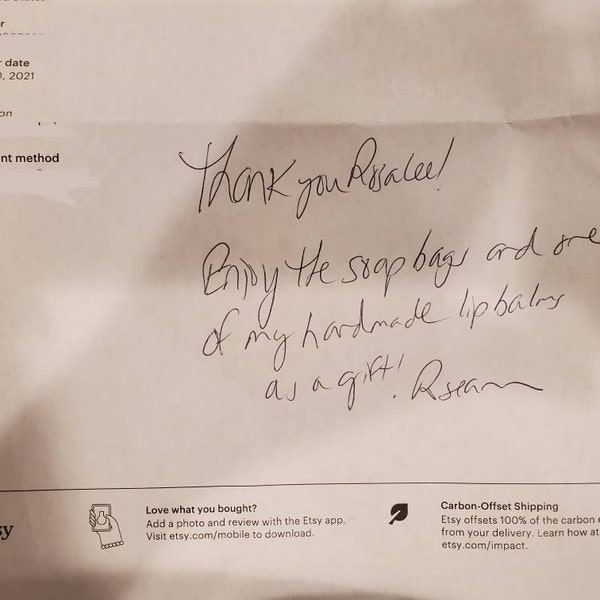 r
date
0, 2021
on
nt method
Thank you Rosalee!
Enjoy the soap bags and one
of my handmade lip balms
as a gift! Roseann
sy
Love what you bought?
Add a photo and review with the Etsy app.
Visit etsy.com/mobile to download.
Carbon-Offset Shipping
Etsy offsets 100% of the carbon e
from your delivery. Learn how at
etsy.com/impact.